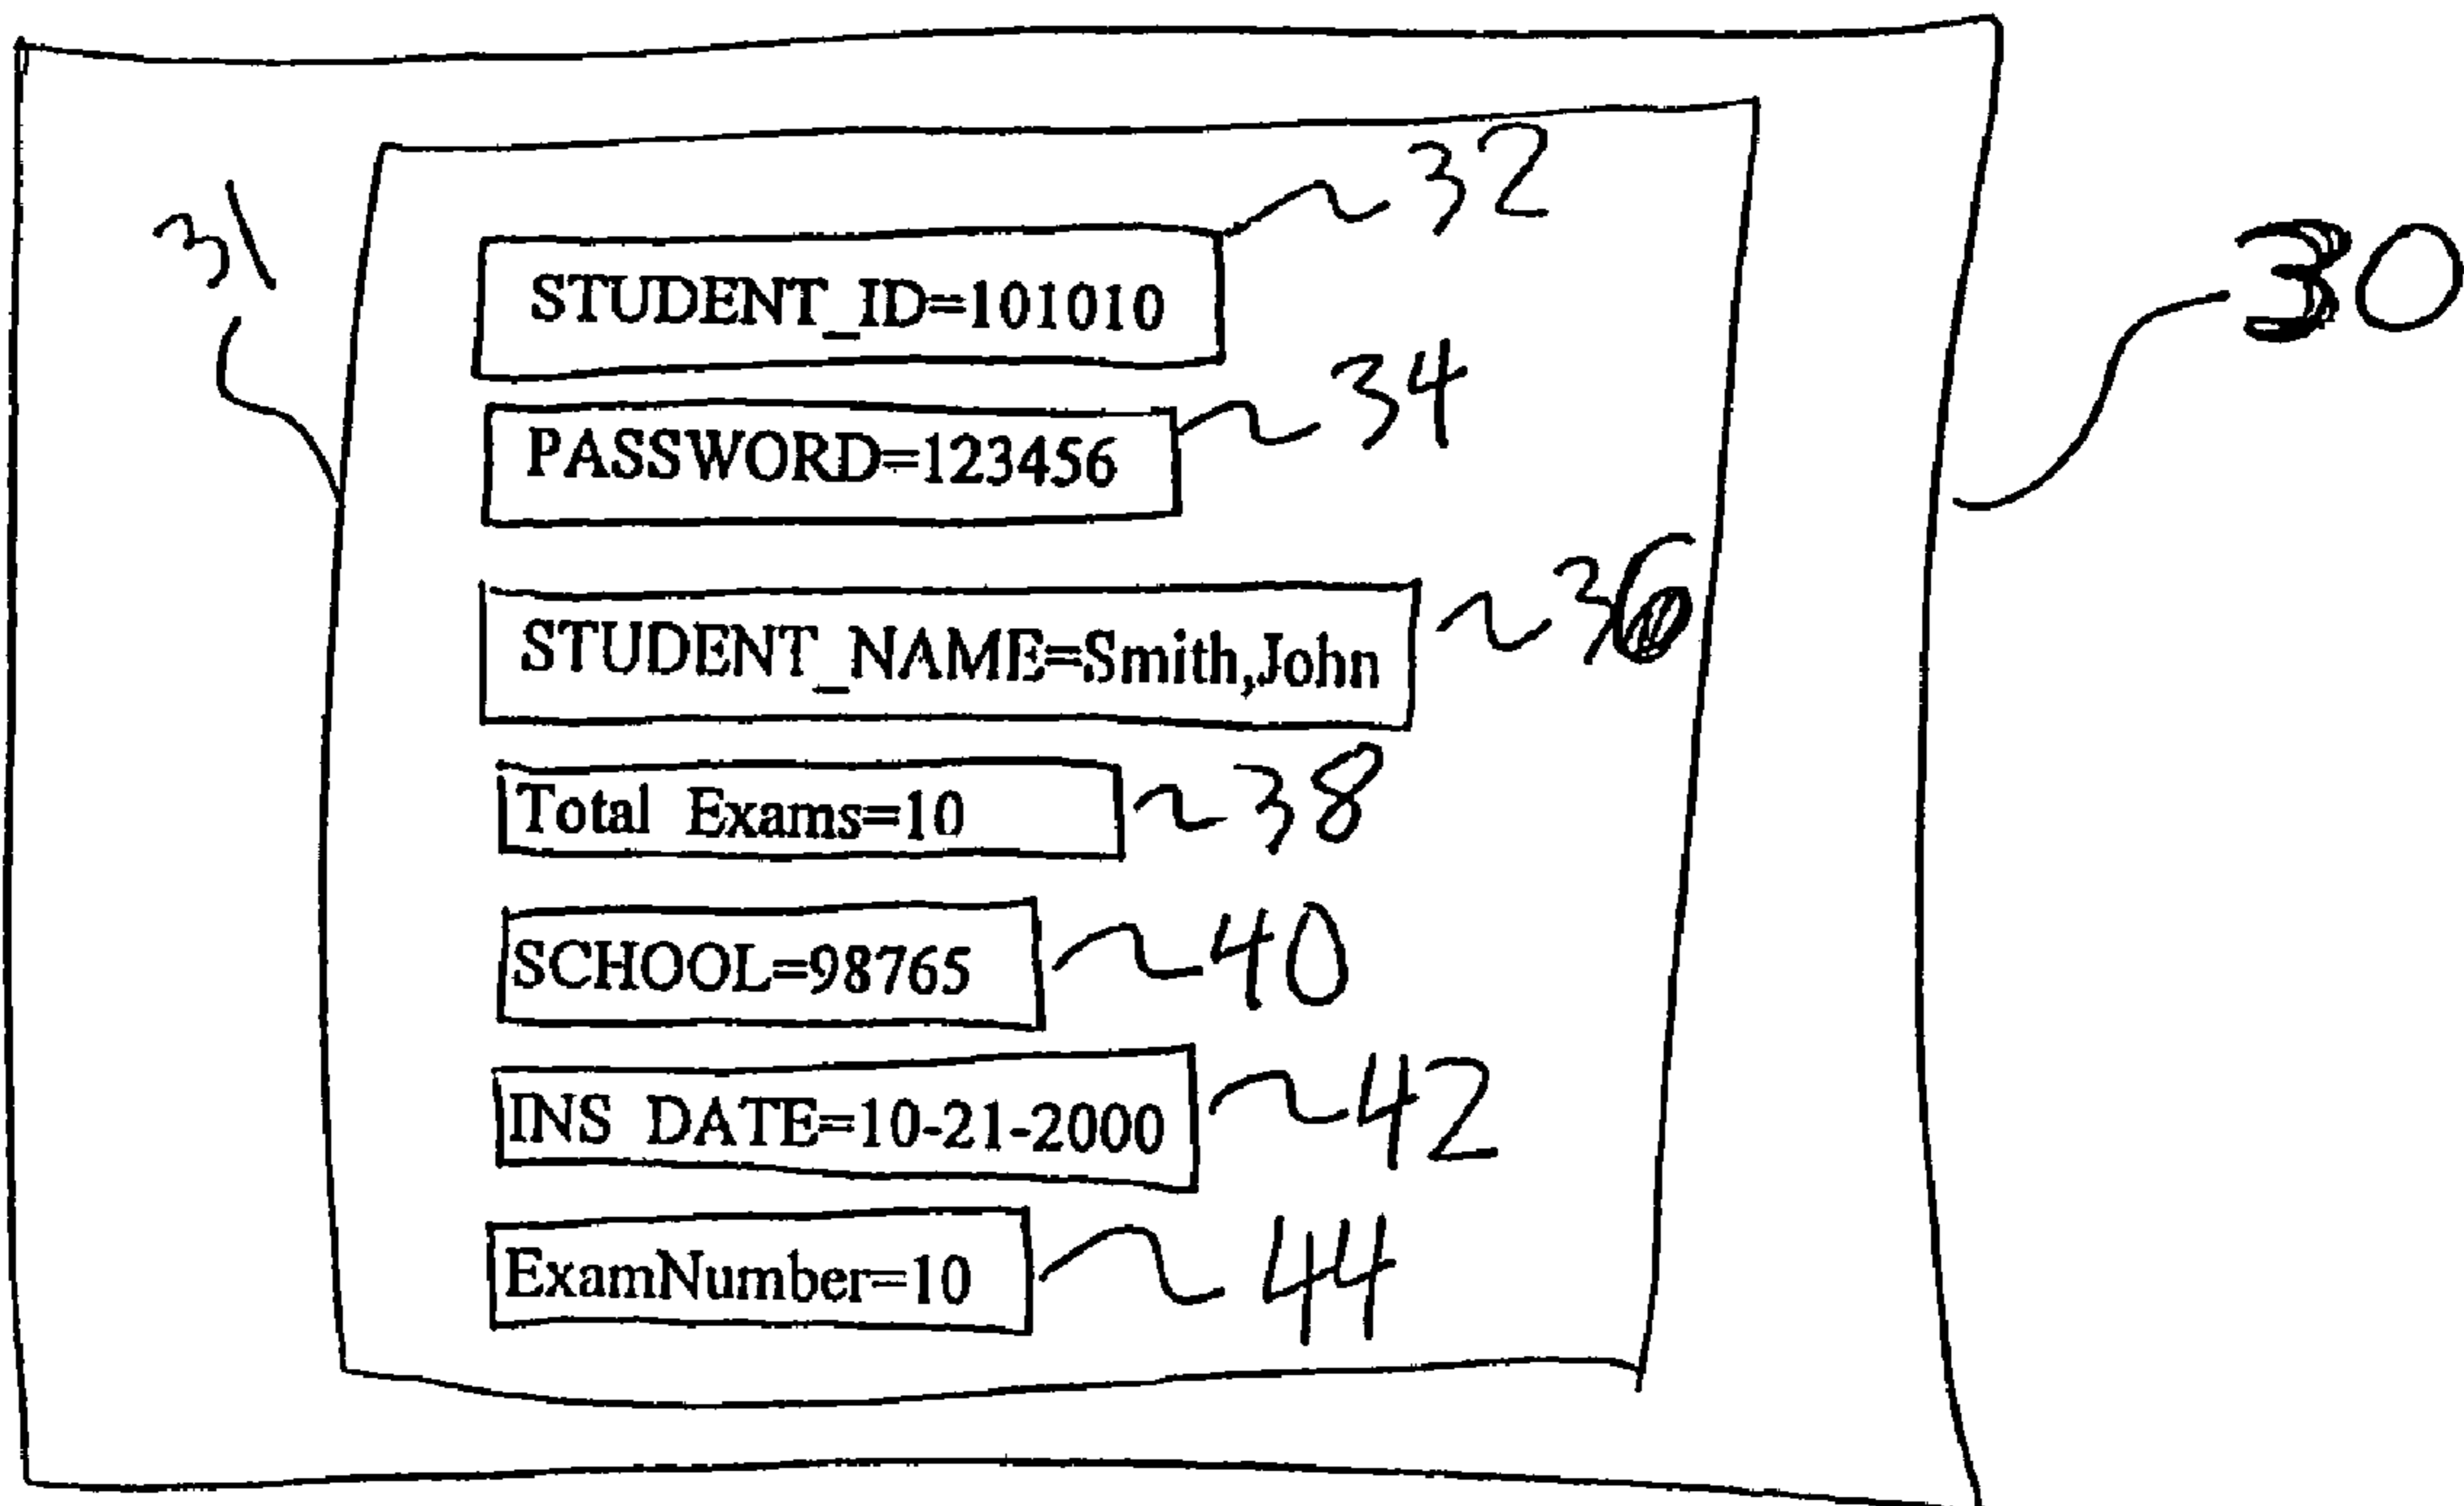 32
31
30
STUDENT_ID=101010
34
PASSWORD=123456
36
STUDENT_NAME=Smith,John
38
Total Exams=10
40
SCHOOL=98765
42
INS DATE=10-21-2000
44
ExamNumber=10